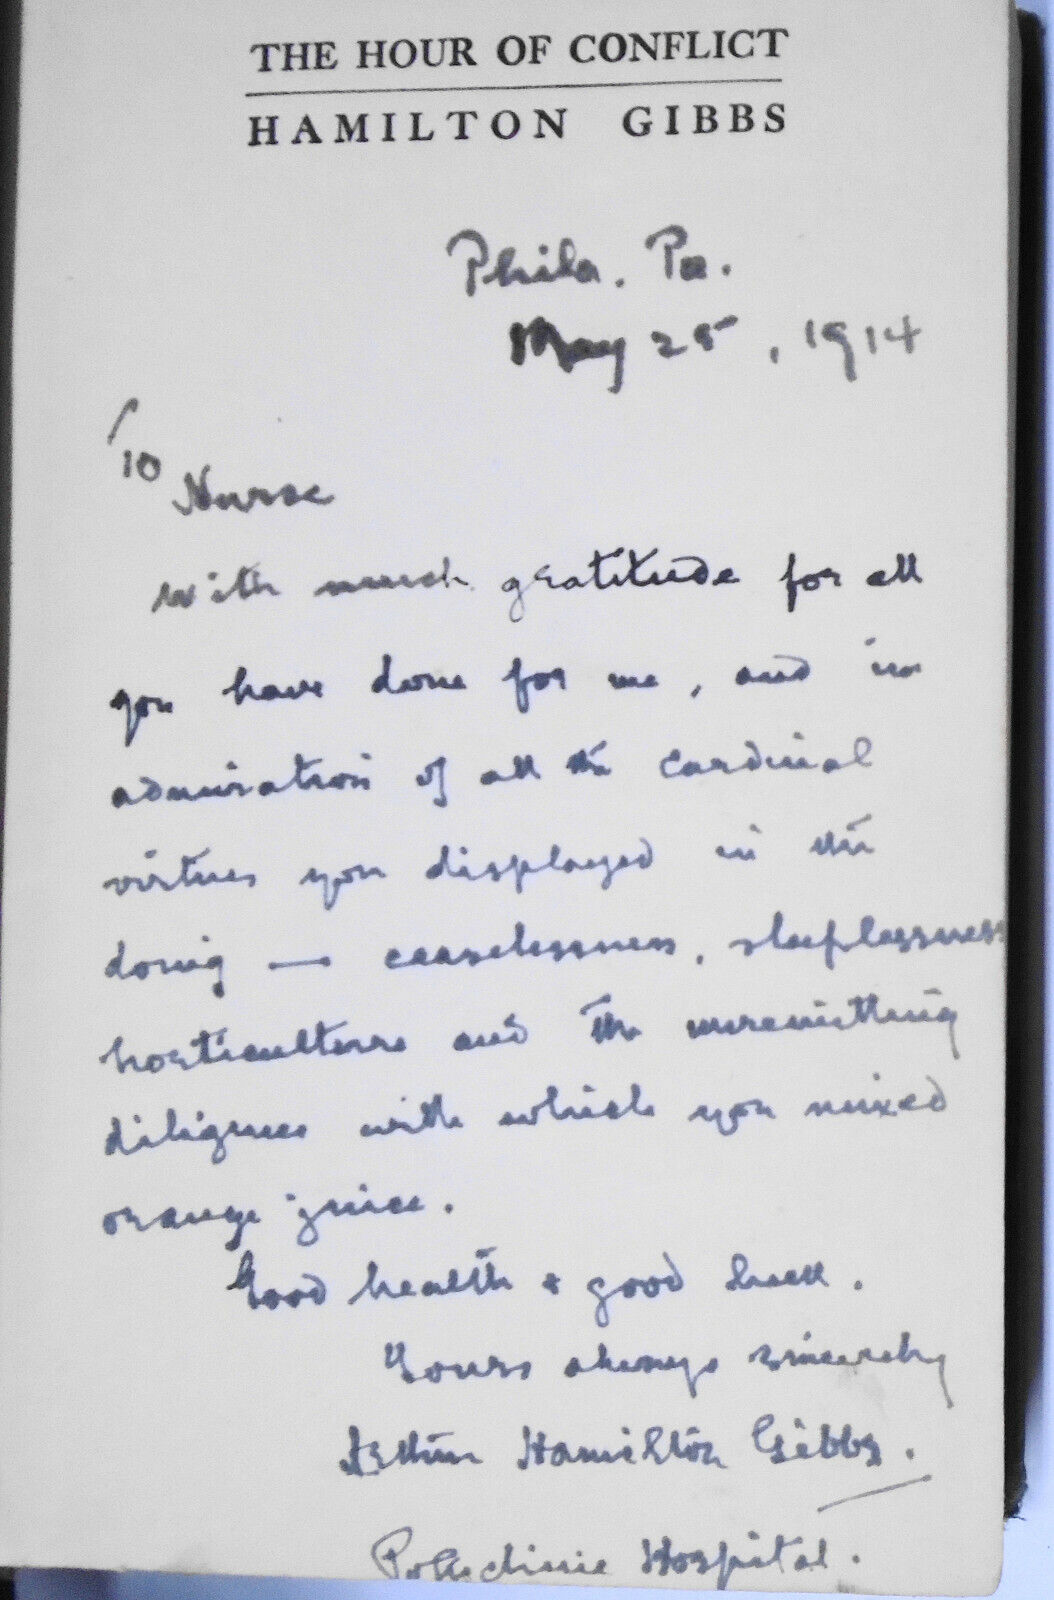 THE HOUR OF CONFLICT
HAMILTON GIBBS
Phila. Pa.
May 25, 1914
To
Nurse
with much gratitude for all
you have done for me, and in
admiration of all the cardinal
virtues you displayed in the
doing — ceaselessness, sleeplessness
horticulture and the unremitting
diligence with which you mixed
orange juice.
Good health & good luck.
Yours always sincerely
Arthur Hamilton Gibbs.
Polyclinic Hospital.